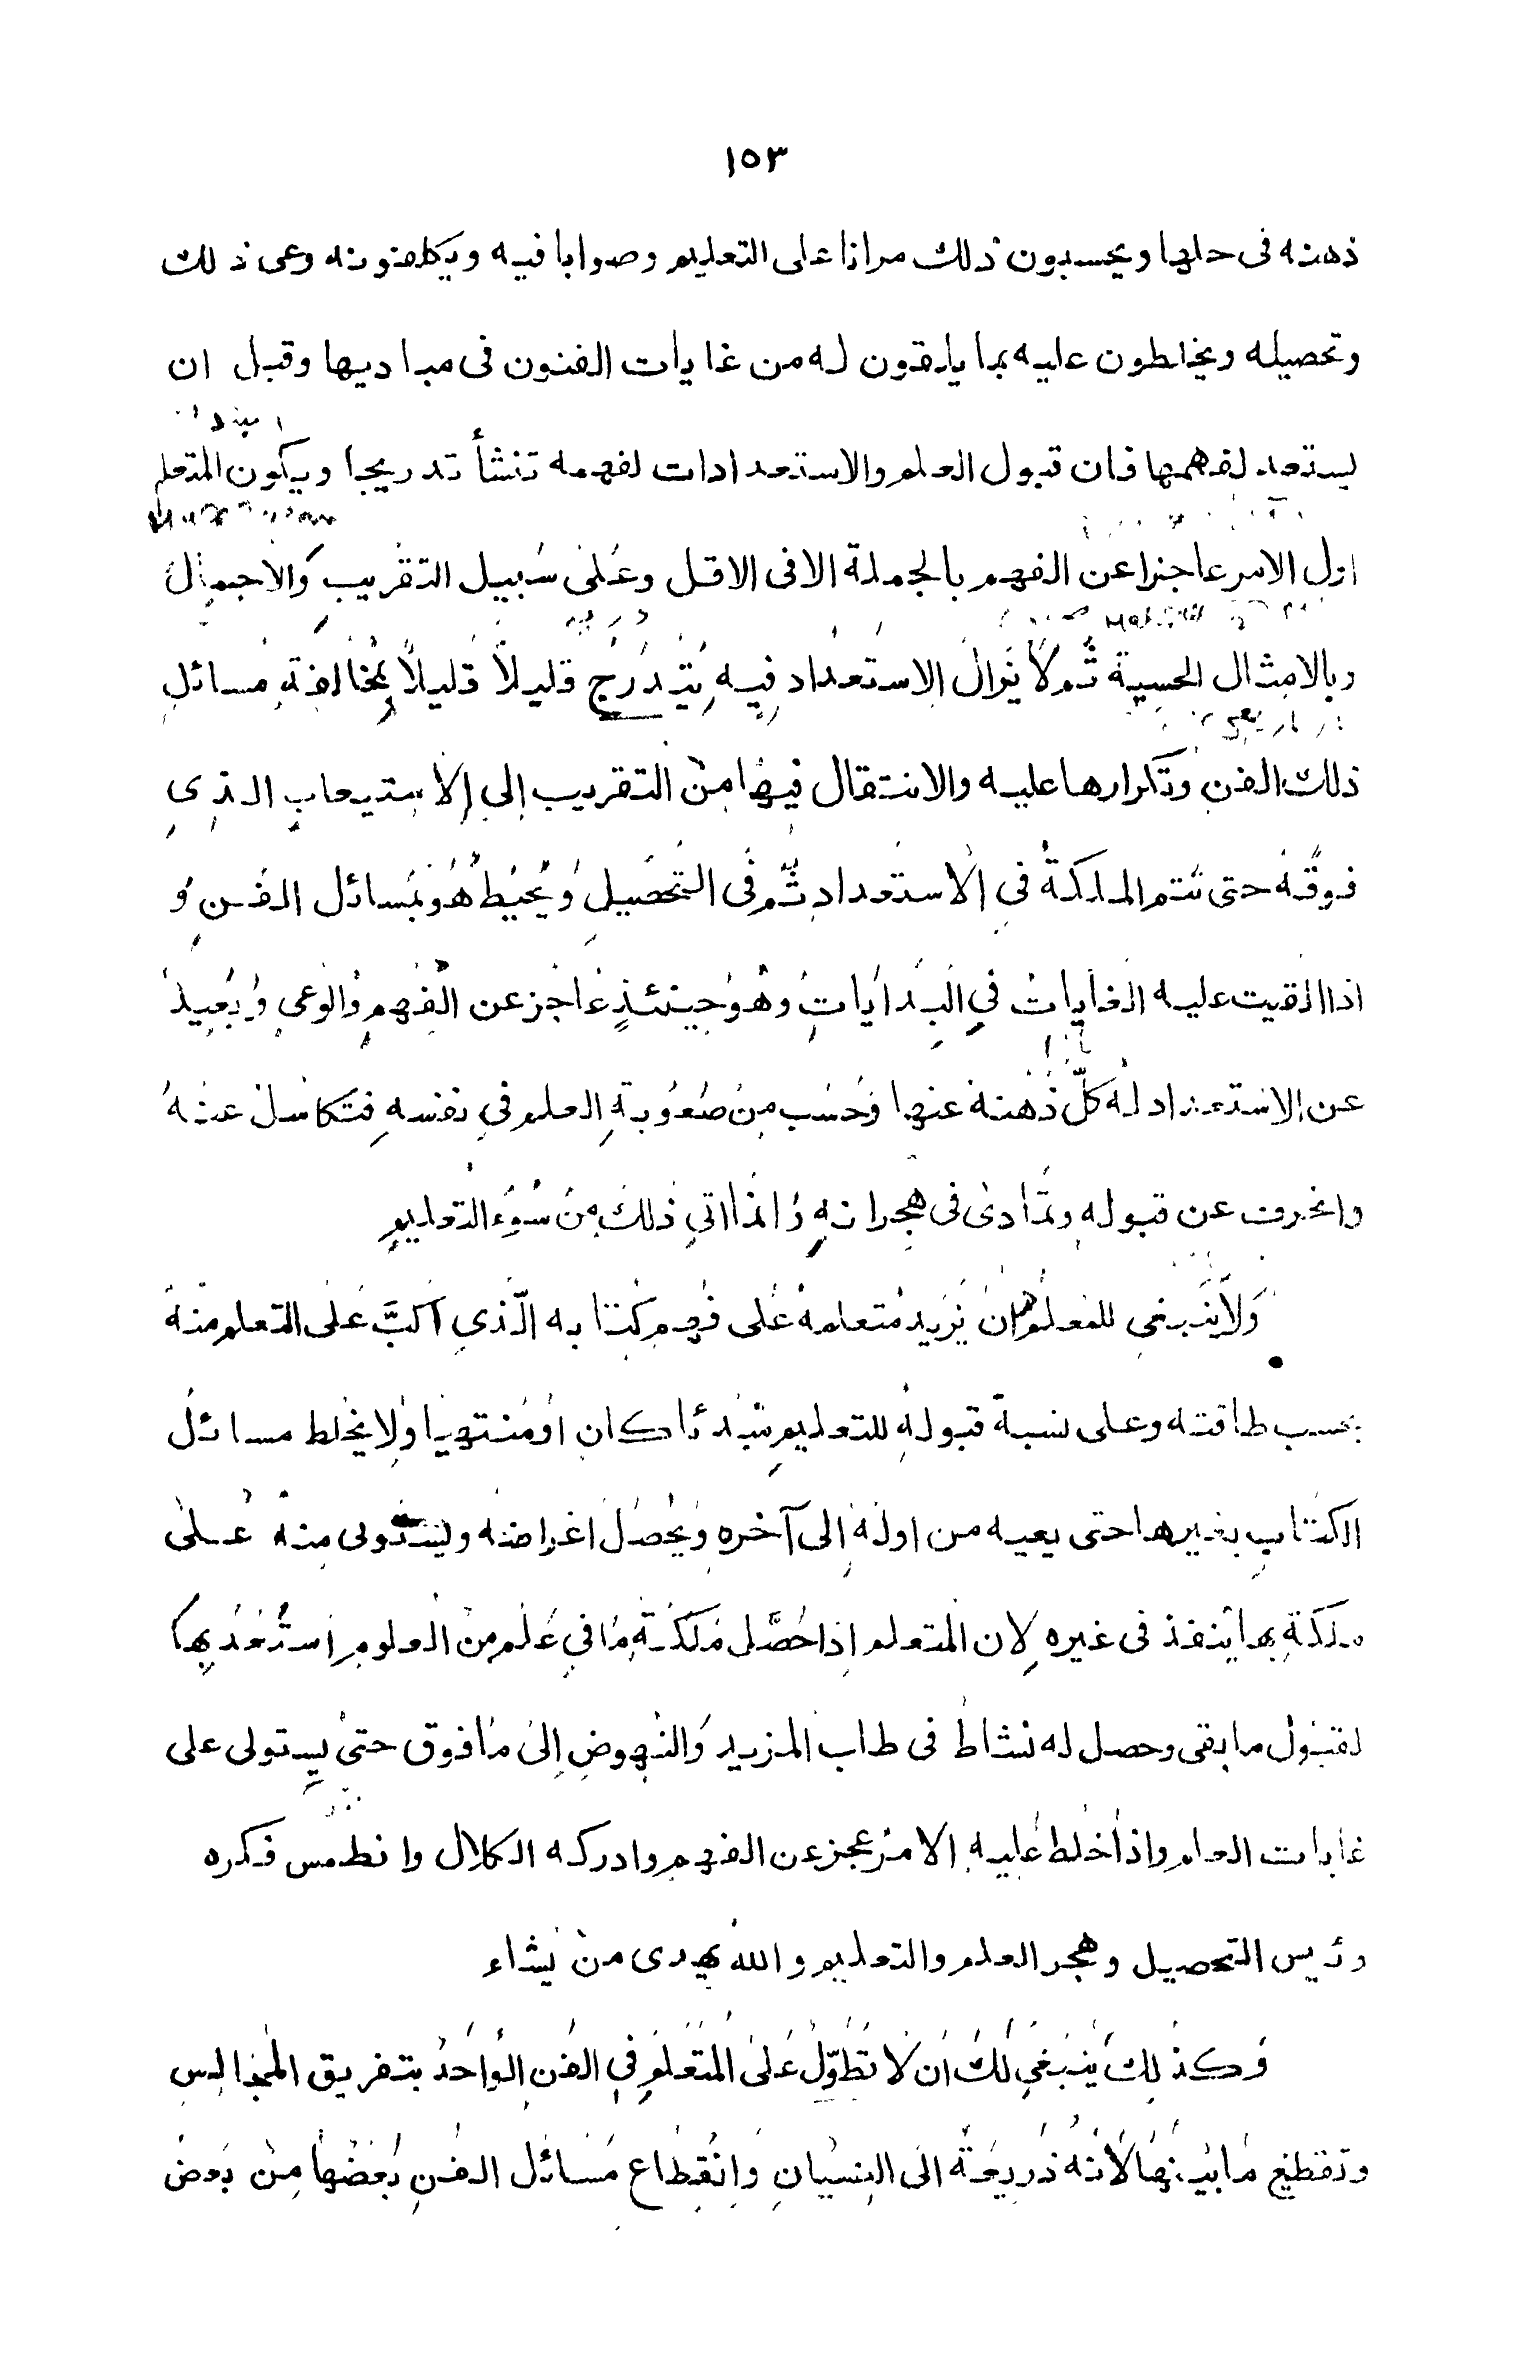 ١٥٣
ذهنه فى حلها ويحسبون ذلك مرانا على التعليم وصوابا فيه ويكلفونه وعى ذلك
وتحصيله ويخلطون عليه بما يلقون له من غايات الفنون فى مباديها وقبل ان
يستعد لفهمها فان قبول العلم والاستعدادات لفهمه تنشأ تدريجا ويكون المتعلم
اول الامر عاجزا عن الفهم بالجملة الا فى الاقل وعلى سبيل التقريب والاجمال
وبالامثال الحسية ثم لا يزال الاستعداد فيه يتدرج قليلا قليلا بمخالفة مسائل
ذلك الفن وتكرارها عليه والانتقال فيها من التقريب إلى الاستيعاب الذى
فوقه حتى تتم الملكة فى الاستعداد ثم فى التحصيل ويحيط هو بمسائل الفن و
اذا القيت عليه الغايات في البدايات وهو حينئذ عاجز عن الفهم والوعي وبعيد
عن الاستعداد له كلّ ذهنه عنها وحسب من صعوبة العلم في نفسه فتكاسل عنه
وانحرف عن قبوله وتمادى فى هجرانه وانما اتي ذلك من سوء التعليم
ولا ينبغي للمعلم ان يزيد متعلمه على فهم كتابه الّذي اكبّ على التعلم منه
بحسب طاقته وعلى نسبة قبوله للتعليم مبتدئا كان او منتهيا ولا يخلط مسائل
الكتاب بغيرها حتى يعيه من اوله إلى آخره ويحصل اغراضه ويستولى منه على
ملكة بها ينفذ فى غيره لان المتعلم اذا حصّل ملكة ما في علم من العلوم استعد بها
لقبول ما بقى وحصل له نشاط فى طلب المزيد والنهوض إلى ما فوق حتى يستولى على
غايات العلم واذا خلط عليه الامر عجز عن الفهم وادركه الكلال وانطمس فكره
وئيس التحصيل وهجر العلم والتعليم والله يهدى من يشاء
وكذلك ينبغي لك ان لا تطوّل على المتعلم في الفن الواحد بتفريق المجالس
وتقطيع ما بينها لانه ذريعة الى النسيان وانقطاع مسائل الفن بعضها من بعض